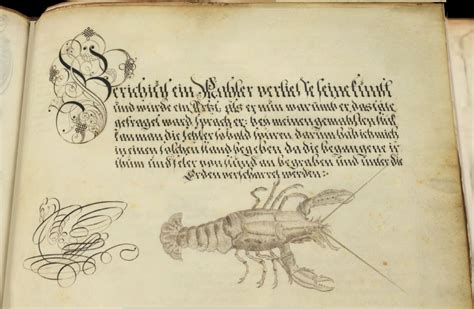 ein Mahler verließ seine kunst
und wurde ein Artzt, als er nun warumb er das täte
gefraget ward sprach er: bey meinen gemählten
kan man die fehler so bald spüren darum hab ich mich
in einen solchen stand begeben da die begangene ir
thum und feler von an begraben und under die
Erden verscharret werden: